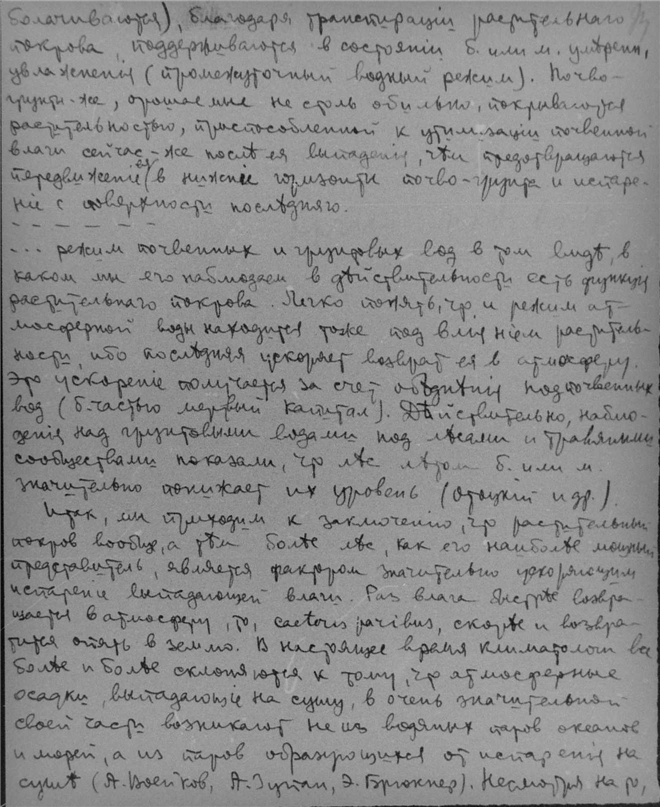 болачиваются), благодаря транспираціи растительнаго
покрова, поддерживаются в состояніи б. или м. умѣренн.
увлажненія (промежуточный водный режим). Почво-
грунты-же, орошаемые не столь обильно, покрываются
растительностью, приспособленной к утилизаціи почвенной
влаги сейчас-же послѣ ея выпаденія, чѣм предотвращаются
передвиженіе ея в нижніе горизонты почво-грунта и испаре-
ніе с поверхности послѣдняго.
... режим почвенных и грунтовых вод в том видѣ, в
каком мы его наблюдаем в дѣйствительности есть функція
растительнаго покрова. Легко понять, что и режим ат-
мосферной воды находится тоже под вліяніем раститель-
ности, ибо послѣдняя ускоряет возврат ея в атмосферу.
Это ускореніе получается за счет объднѣнія подпочвенных
вод (б. частью мервый капитал). Дѣйствительно, наблю-
денія над грунтовыми водами под лѣсами и травяными
сообществами показали, что лѣс лѣтом б. или м.
значительно понижает их уровень (Отоцкій и др.).
Итак, мы приходим к заключенію, что растительный
покров вообще, а тѣм болѣе лѣс, как его наиболѣе мощный
представитель, является фактором значительно ускоряющим
испареніе выпадающей влаги. Раз влага быстрѣе возвра-
щается в атмосферу, то, caeteris paribus, скорѣе и возвра-
тится опять в землю. В настоящее время климатологи все
болѣе и болѣе склоняются к тому, что атмосферные
осадки, выпадающіе на сушу, в очень значительной
своей части возникают не из водяных паров океанов
и морей, а из паров образующихся от испаренія на
сушѣ (А. Воейков, А. Зупан, Э. Брюкнер). Несмотря на то,